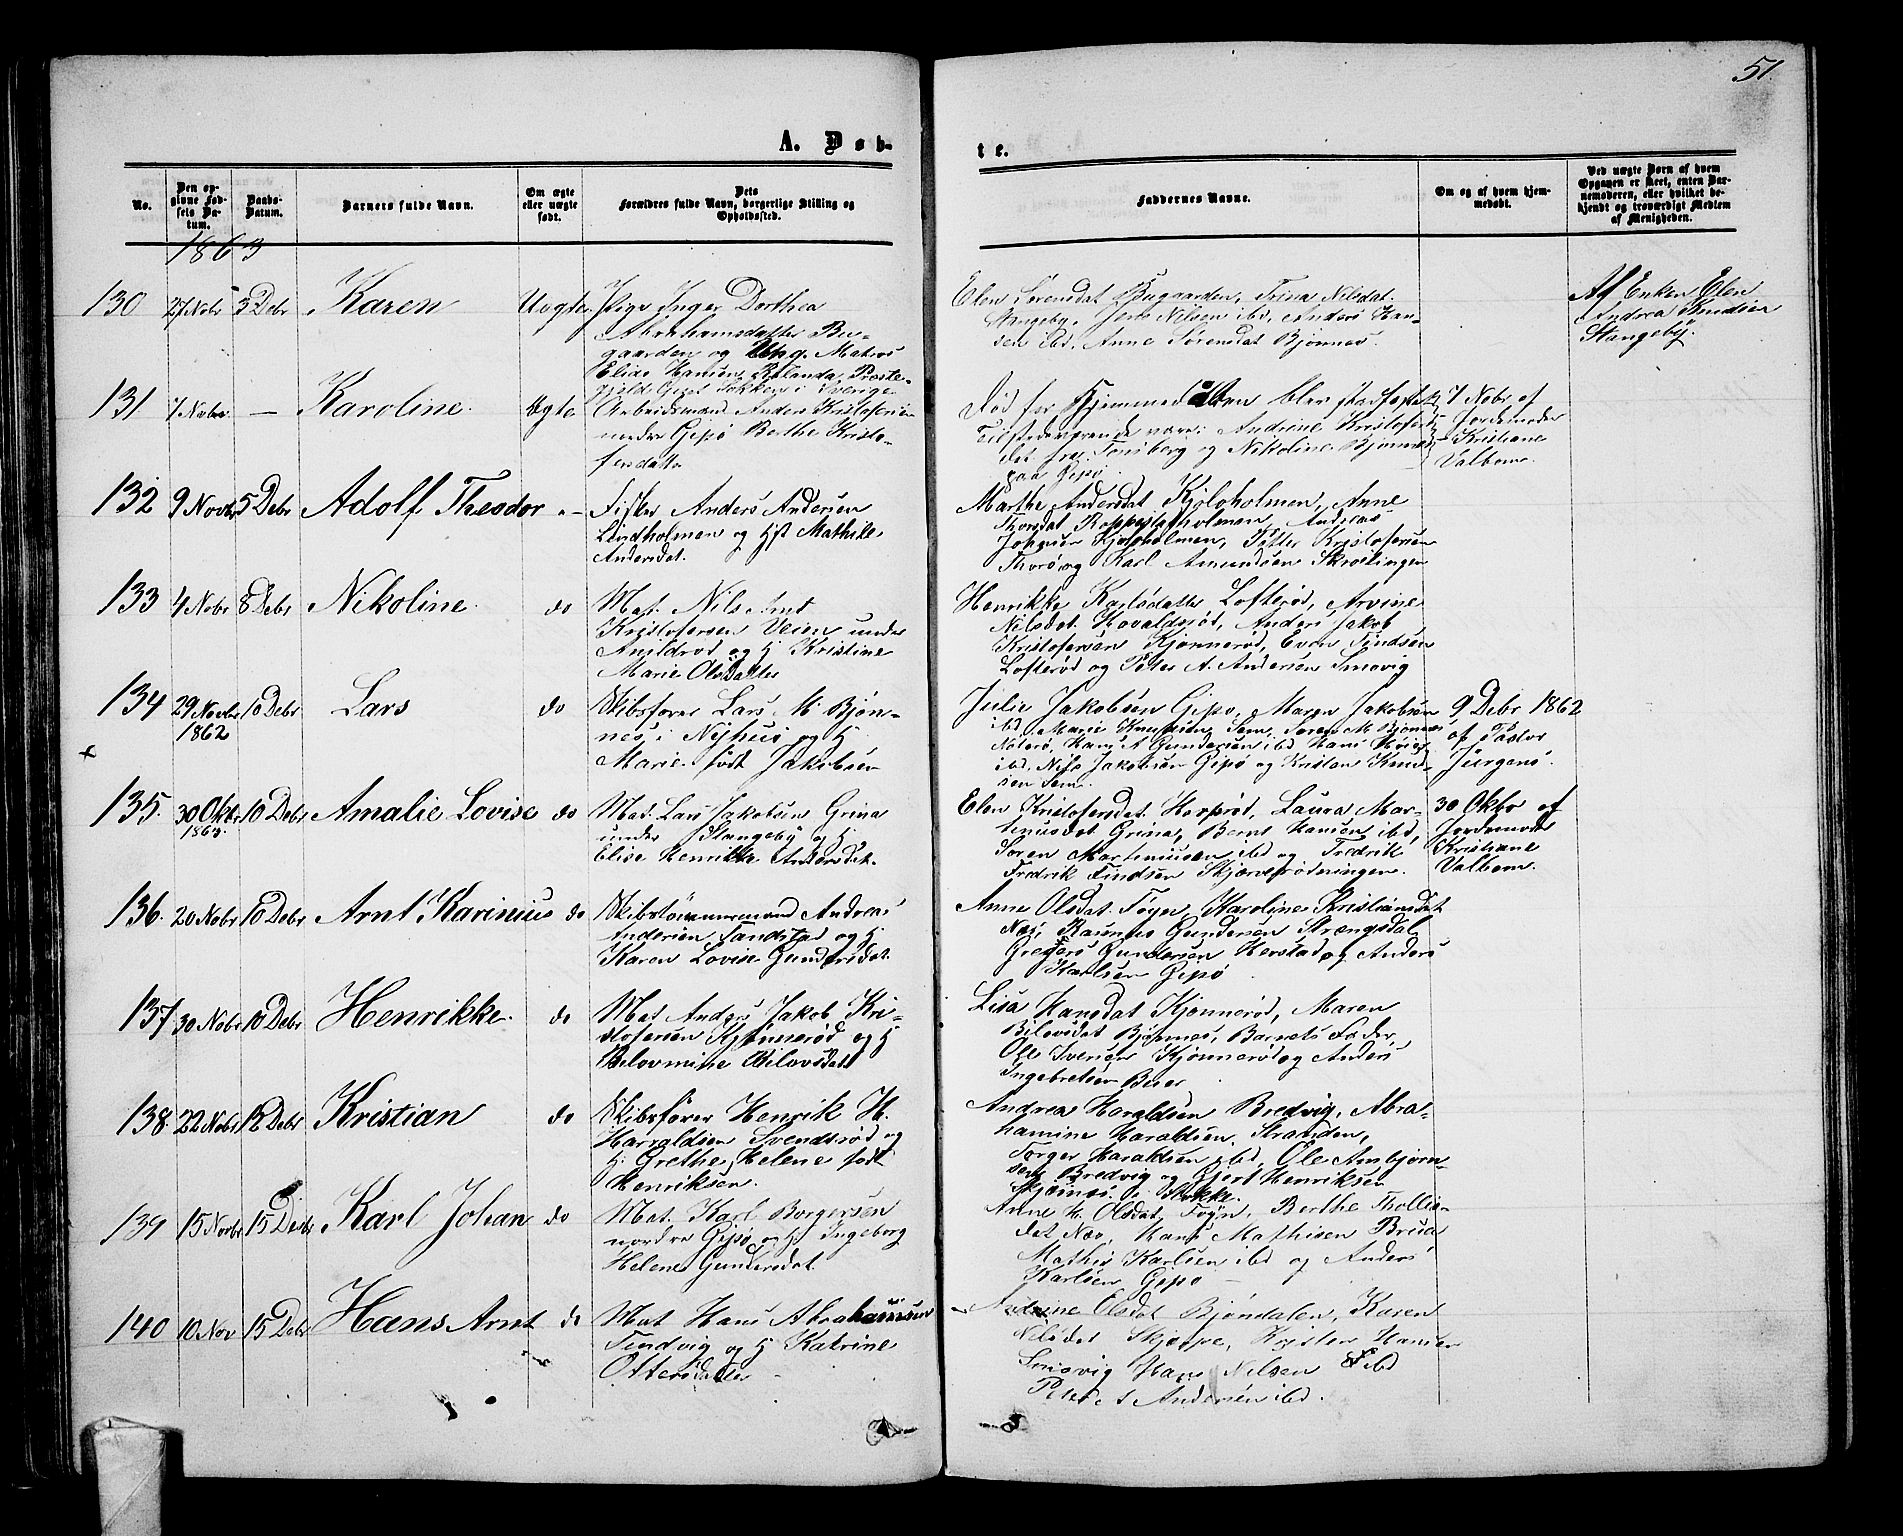 51.
A. Døb-
te.
No.
Den opgivne Fødsels Datum.
Daabs-Datum.
Barnets fulde Navn.
Om ægte eller uægte født.
Dets Forældres fulde Navn, borgerlige Stilling og Opholdssted.
Faddernes Navne.
Om og af hvem hjemmedøbt.
Ved uægte Børn af hvem Opgaven er skeet, enten Barnemoderen, eller hvilket bekjendt og troværdigt Medlem af Menigheden.
1863
130 27 Nobr 3 Debr Karen Uægte Pige Inger Dorthea
Abrahamsdatter Bu-
gaarden og Ung. Matros
Elias Hansen, Rolanda Præste-
gjeld Sokken i Sverige
Elen Sørensdat Bugaarden, Trina Nilsdat.
Stangeby, Jens Nilsen ibd, Anders Han-
sen ibd, Anne Sørensdat Bjønnes.
Af Enken Elen
Andrea Knudsen
Stangeby.
131 7 Nobr — Karoline Ægte Arbeidsmand Anders Kristofersen
nordre Gipø Berthe Kristo-
fersdatter
Død før Hjemmedåben blev stadfæstet
Tilstedeværende vare: Andrine Kristofers-
dat fra Tønsberg og Nikoline Bjønnes
paa Gipø.
7 Nobr af
Jordemoder
Kristiane
Valbom.
132 9 Novbr 5 Debr Adolf Theodor — Fisker Anders Andersen
Lindholmen og Hst Mathilde
Andersdat.
Marthe Andersdat Kjøleholmen, Anne
Thorsdat Roppestadholmen, Andreas
Johnsen Kjøleholmen, Petter Kristofersen
Thorø og Karl Amundsen Skrøslingen
133 4 Nobr 8 Debr Nikoline do Mat. Nils Arnt
Kristofersen Veien under
Anildrød og H Kristine
Marie Olsdatter
Henrikke Karlsdatter Lofterød, Arvine
Nilsdat. Hovaldsrød, Anders Jakob
Kristofersen Kjønnerød, Even Findsen
Lofterød og Peter A. Andersen Smovig
134 29 Novbr 1862 10 Debr Lars do Skibsfører Lars M. Bjøn-
nes i Nyhus og H.
Marie født Jakobsen
Julie Jakobsen Gipø, Maren Jakobsen
ibd, Marie Knudsen Sem, Søren M. Bjønnes
Nøterø, Hans A Gundersen ibd Hans Høier
ibd. Nils Jakobsen Gipø og Kristen Knud-
sen Sem.
9 Debr 1862
af Pastor
Jürgens.
+
135. 30 Oktbr 1863. 10 Debr Amalie Lovise do Mat. Lars Jakobsen Grina
under Stangeby og H.
Elise Henrikke Andersdat.
Elen Kristofersdat. Harprød, Laura Mar-
tinusdat Grina, Bernt Hansen ibd,
Søren Martinusen ibd og Fredrik
Fredrik Findsen Skjærvefrødningen.
30 Oktbr af
Jordemoder
Kristiane
Valbom.
136. 20 Nobr 10 Debr Arnt Karinius do Skibstømmermand Andreas
Andersen Tandstad og H.
Karen Lovise Gundersdat.
Anne Olsdat. Føyn, Karoline Kristiansdat
Næs, Rasmus Gundersen Strængsdal
Gregers Gundersen Herstad og Anders
Karlsen Gipø
137 30 Nobr 10 Debr Henrikke do Mat Anders Jakob Kri-
stofersen Kjønnerød og H
Bilovmine Bilovsdatt
Lisa Hansdat Kjønnerød, Maren
Bilovsdat Bjønnes, Barnets Fader,
Ole Svensen Kjønnerød og Anders
Ingebretsen Buer
138 22 Nobr 12 Debr Kristian do Skibsfører Henrik H.
Harraldsen Svendsrød og
H. Grethe Helene født
Henriksen.
Andrea Haraldsen Bredvig, Abra-
hamine Haraldsen. Stranden,
Torger Haraldsen ibd, Ole Ambjørn-
sen Bredvig og Gjert Henriksen
i Stokke.
139 15 Novbr 15 Debr Karl Johan do Mat. Karl Borgersen
nordre Gipø og H Ingeborg
Helene Gundersdat.
Anne K. Olsdat, Føyn, Berthe Thollis-
dat Næs, Hans Mathisen Bruse
Mathis Karlsen ibd og Anders
Karlsen Gipø —
140 10 Nov 15 Debr Hans Arnt do Mat Hans Abrahamsen
Tendvig og H Katrine
Ottersdatter
Olsdat Bjøndalen, Karen
Nilsdat Skjerve, Kristen Hansen
Smovig Hans Nilsen ibd
Peter A Andersen ibd.